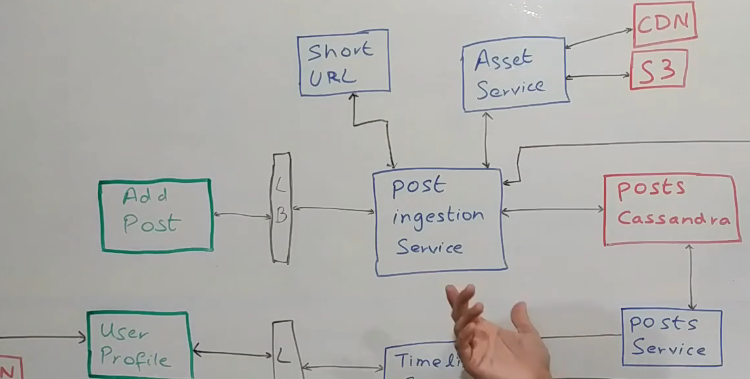 CDN
Short
URL
Asset
Service
S3
Add
Post
L
B
post
ingestion
Service
posts
Cassandra
User
Profile
L
posts
Service
N